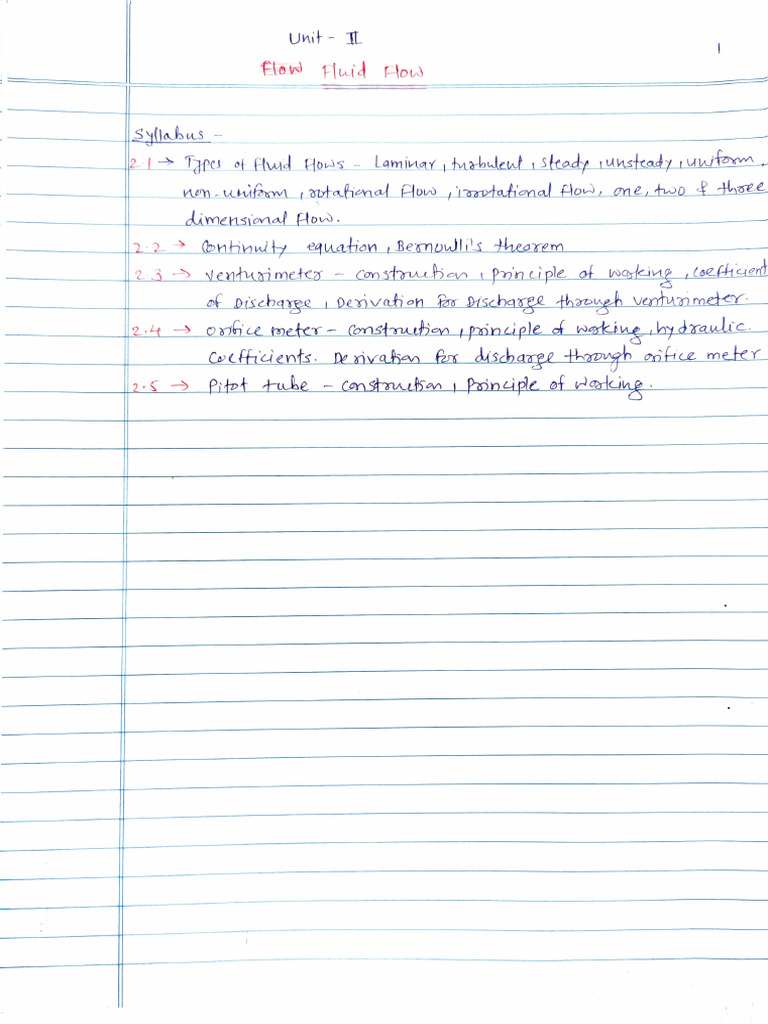 Unit - II
1
Flow Fluid Flow
Syllabus -
2.1 → Types of Fluid Flows - Laminar, turbulent, steady, unsteady, uniform,
non-uniform, rotational flow, irrotational flow, one, two & three
dimensional flow.
2.2 → Continuity equation, Bernoulli's theorem
2.3 → Venturimeter - construction, principle of working, coefficient
of Discharge, Derivation for Discharge through venturimeter.
2.4 → Orifice meter - construction, principle of working, hydraulic.
Coefficients. Derivation for discharge through orifice meter
2.5 → Pitot tube - construction, Principle of working.